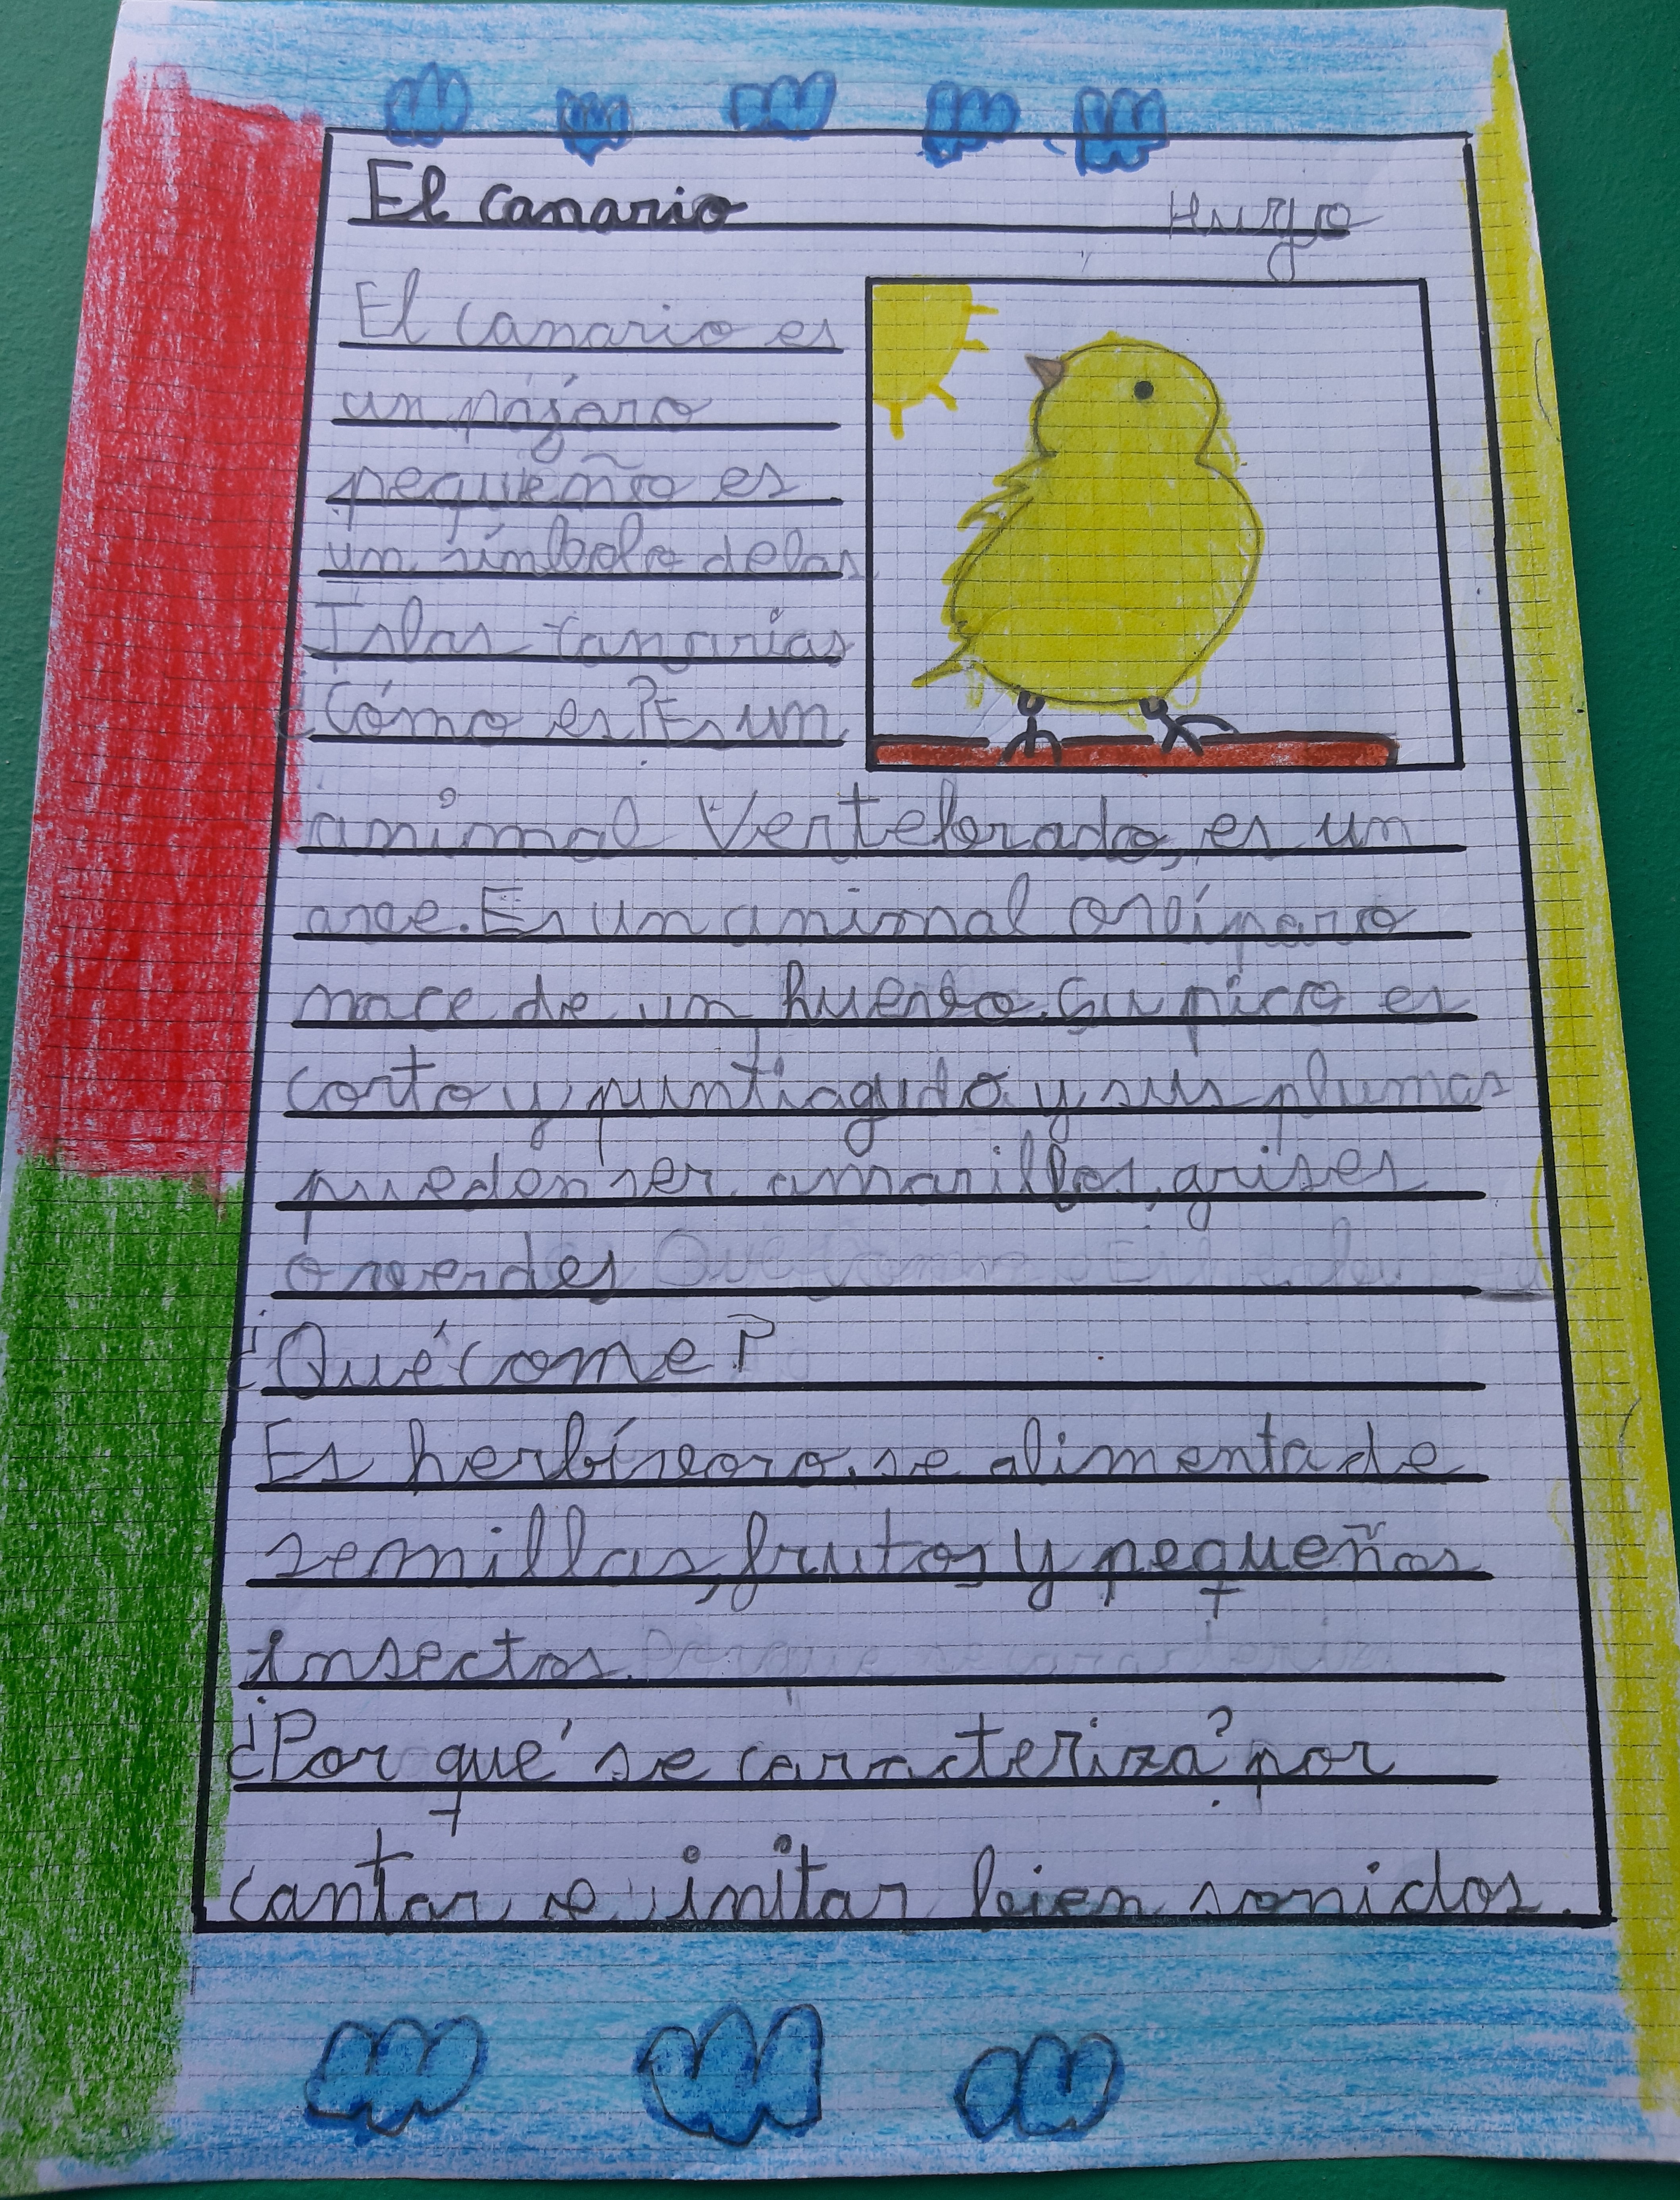 El canario
Hugo
El canario es
un pájaro
pequeño es
un símbolo de las
Islas Canarias
¿Cómo es? Es un
animal Vertebrado, es un
ave. Es un animal ovíparo
nace de un huevo. Su pico es
corto y puntiagudo y sus plumas
pueden ser amarillas, grises
o verdes
¿Qué come?
Es herbívoro, se alimenta de
semillas, frutos y pequeños
insectos.
¿Por qué se caracteriza? por
cantar e imitar bien sonidos.